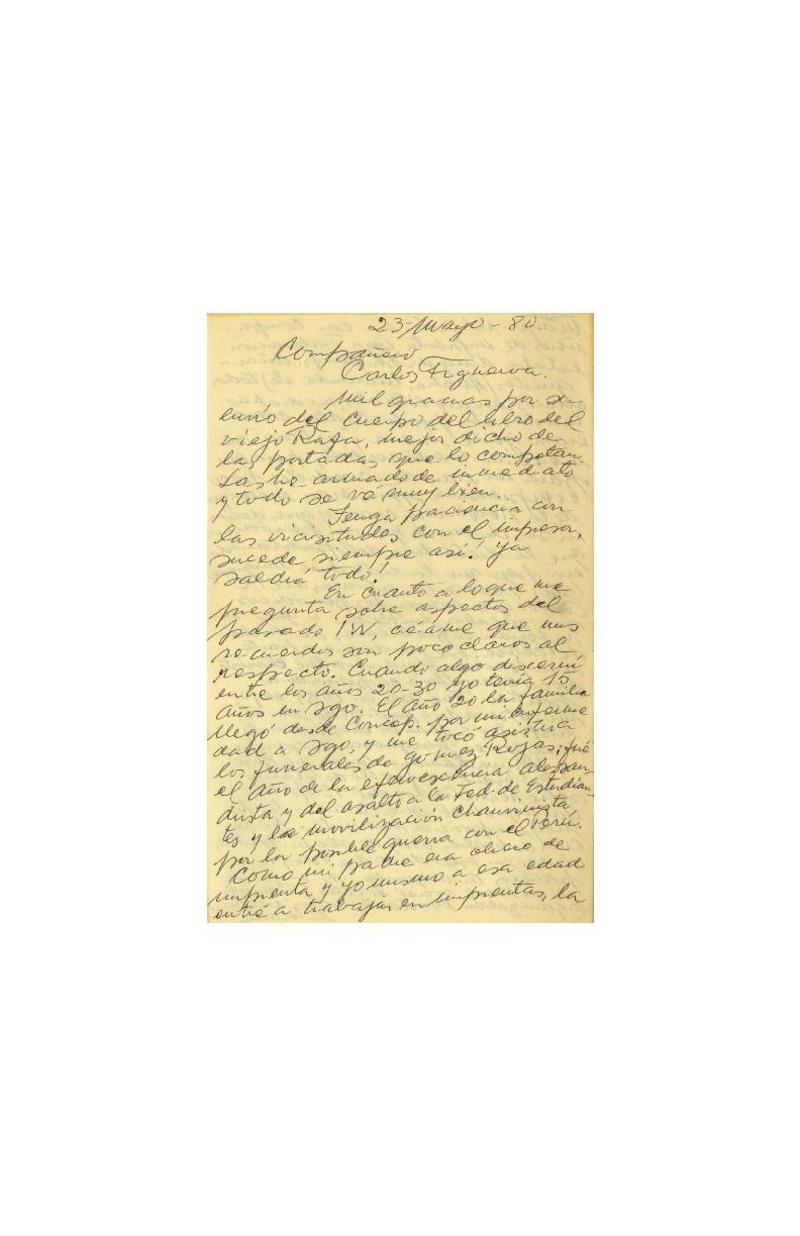 23-Mayo-80.
Compañero
Carlos Figueroa.
Mil gracias por su
envío del cuerpo del libro del
viejo Rafa, mejor dicho de
las portadas que lo completan
Las he armado de inmediato
y todo se vé muy bien.
Tenga paciencia con
las vicisitudes con el impresor,
sucede siempre así! Ya
saldrá todo!
En cuanto a lo que me
pregunta sobre aspectos del
pasado IW, créame que mis
recuerdos son poco claros al
respecto. Cuando algo discerní
entre los años 20-30 yo tenía 15
años en Sgo. El año 20 la familia
llegó desde Concep. por mi enferme
dad a Sgo, y me tocó asistir a
los funerales de Gomez Rojas; fué
el año de la efervescencia alessan-
drista y del asalto a la Fed. de Estudian-
tes y la movilización chauvinista
por la posible guerra con el Perú.
Como mi padre era obrero de
imprenta y yo mismo a esa edad
entré a trabajar en imprentas, la